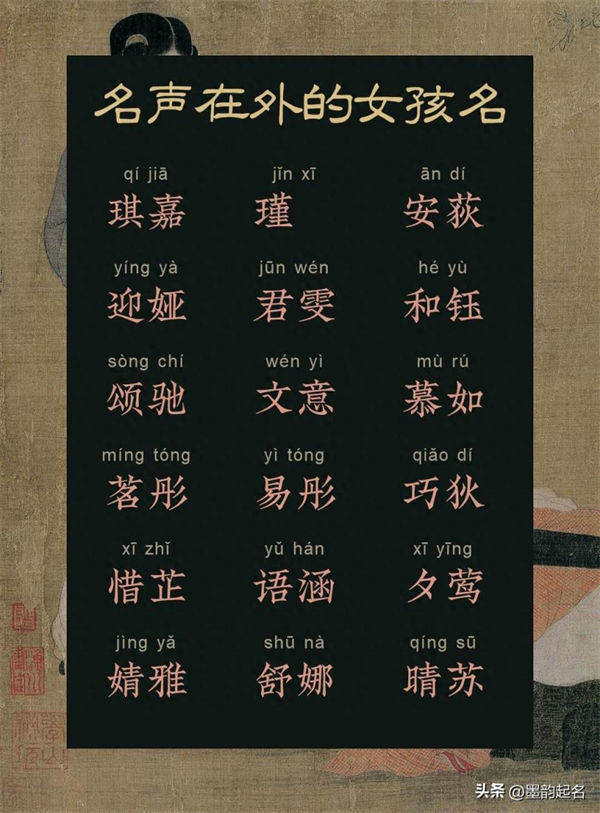 名声在外的女孩名
qí jiā jǐn xī ān dí
琪嘉 瑾 安荻
yíng yà jūn wén hé yù
迎娅 君雯 和钰
sòng chí wén yì mù rú
颂驰 文意 慕如
míng tóng yì tóng qiǎo dí
茗彤 易彤 巧狄
xī zhǐ yǔ hán xī yīng
惜芷 语涵 夕莺
jìng yǎ shū nà qíng sū
婧雅 舒娜 晴苏
头条 @墨韵起名